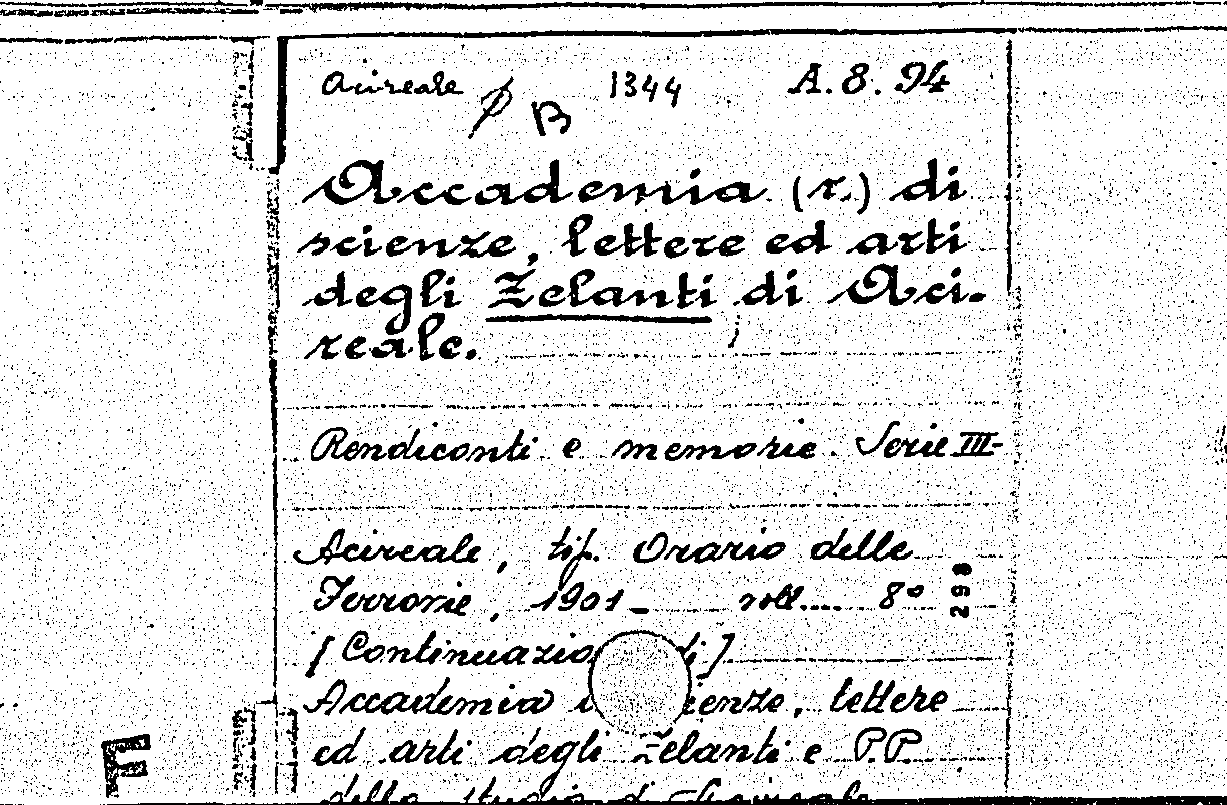 Acireale B 1344 A.8.94
Accademia (r.) di
scienze, lettere ed arti
degli Zelanti di Aci-
reale.
Rendiconti e memorie. Serie III-
Acireale, tip. Orario delle
Ferrovie, 1901- voll.... 8°
298
[Continuazio di]
Accademia ienze, lettere
ed arti degli Zelanti e P.P.
dello studio di Acireale
F